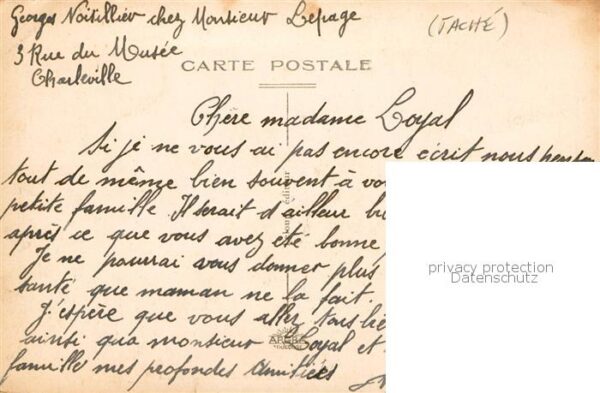 Georges Noitillier chez Monsieur Lepage
(TACHÉ)
3 Rue du Musée
Charleville
CARTE POSTALE
Chère madame Loyal
Si je ne vous ai pas encore écrit nous
tout de même bien souvent à
petite famille. Il serait d'ailleur
après ce que vous avez été bonne
Je ne pourrai vous donner plus
santé que maman ne la fait.
J'espère que vous allez tous
ainsi qua monsieur Loyal et
famille mes profondes Amitiés
privacy protection
Datenschutz